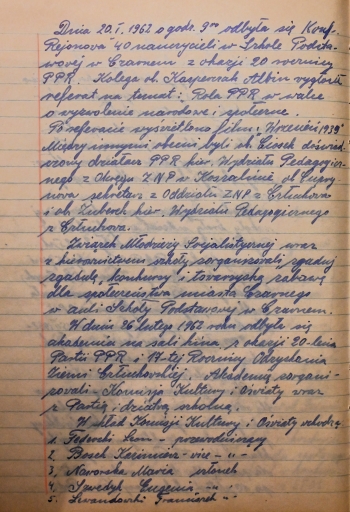 Dnia 20.I. 1962 o godz. 9ᵒᵒ odbyła się Konf.
Rejonowa 40 nauczycieli w Szkole Podsta-
wowej w Czarnem z okazji 20 rocznicy
PPR. Kolega ob. Kasperzak Albin wygłosił
referat na temat: Rola PPR w walce
o wyzwolenie narodowe i społeczne.
Po referacie wyświetlono film: "Wrzesień 1939"
Między innymi obecni byli ob. Ciosek doświad-
czony działacz PPR kier. Wydziału Pedagogicz-
nego z Okręgu ZNP w Koszalinie ob.
sekretarz z Oddziału ZNP z Człuchowa
i ob. kier. Wydziału Pedagogicznego
z Człuchowa.
Związek Młodzieży Socjalistycznej wraz
z kierownictwem szkoły zorganizowali zgaduj
zgadulę, konkursy i towarzyską zabawę
dla społeczeństwa miasta Czarnego
w auli Szkoły Podstawowej w Czarnem.
W dniu 26 lutego 1962 roku odbyła się
akademia na sali kina, z okazji 20-lecia
Partii PPR i 17-tej Rocznicy Odzyskania
Ziemi Człuchowskiej. Akademię zorgani-
zowali - Komisja Kultury i Oświaty wraz
z Partią i dziatwą szkolną.
W skład Komisji Kultury i Oświaty wchodzą
1. Fedorski Leon - przewodniczący
2. Bosek Kazimierz - vice - " -
3. Naworska Maria członek
4. Szwedyk Eugenia - " -
5. Lewandowski Franciszek - " -